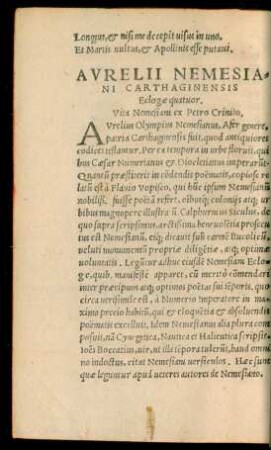 Longus, & nisi me decepit uisus in uno.
Et Martis uultus, & Apollinis esse putaui.
AVRELII NEMESIA-
NI CARTHAGINENSIS
Eclogæ quatuor.
Vita Nemesiani ex Petro Crinito,
AVrelius Olympius Nemesianus, Afer genere,
patria Carthaginensis fuit, quod antiquiores
codices testantur. Per ea tempora in urbe floruit, qui
bus Cæsar Numerianus & Diocletianus imperarūt.
Quantū præstiterit in cōdendis poëmatis, copiose re
latū est à Flauio Vopisco, qui hūc ipsum Nemesianū
nobiliss. fuisse poëtā refert, oībusq; coronis illustrē, &
urbibus magnopere illustratū. Calphurnius Siculus, de
quo supra scripsimus, arctissima beneuolētia prosecu
tus est Nemesianū, eiq; dicauit suū carmē Bucolicū,
ueluti monumentū propriæ diligētiæ, atq; optimæ
uoluntatis. Legūtur adhuc eiusdē Nemesiani Eclo-
gæ, quib. manifestè apparet, cū meritò cōmendari
inter præcipuos atq; optimos poëtas sui tēporis, quo
circa uerisimile est, à Numerio Imperatore in ma-
ximo precio habitū, qui & eloquētia & absoluendis
poëmatis excelluit. Idem Nemesianus alia plura com
posuit, nā Cynegetica, Nautica et Halieutica scripsit.
Ioēs Boccatius, uir, ut illa tēpora tulerūt, haud omni
no indoctus, citat Nemesiani uersiculos. Hæc sunt
quæ leguntur apud ueteres autores de Nemesiano.